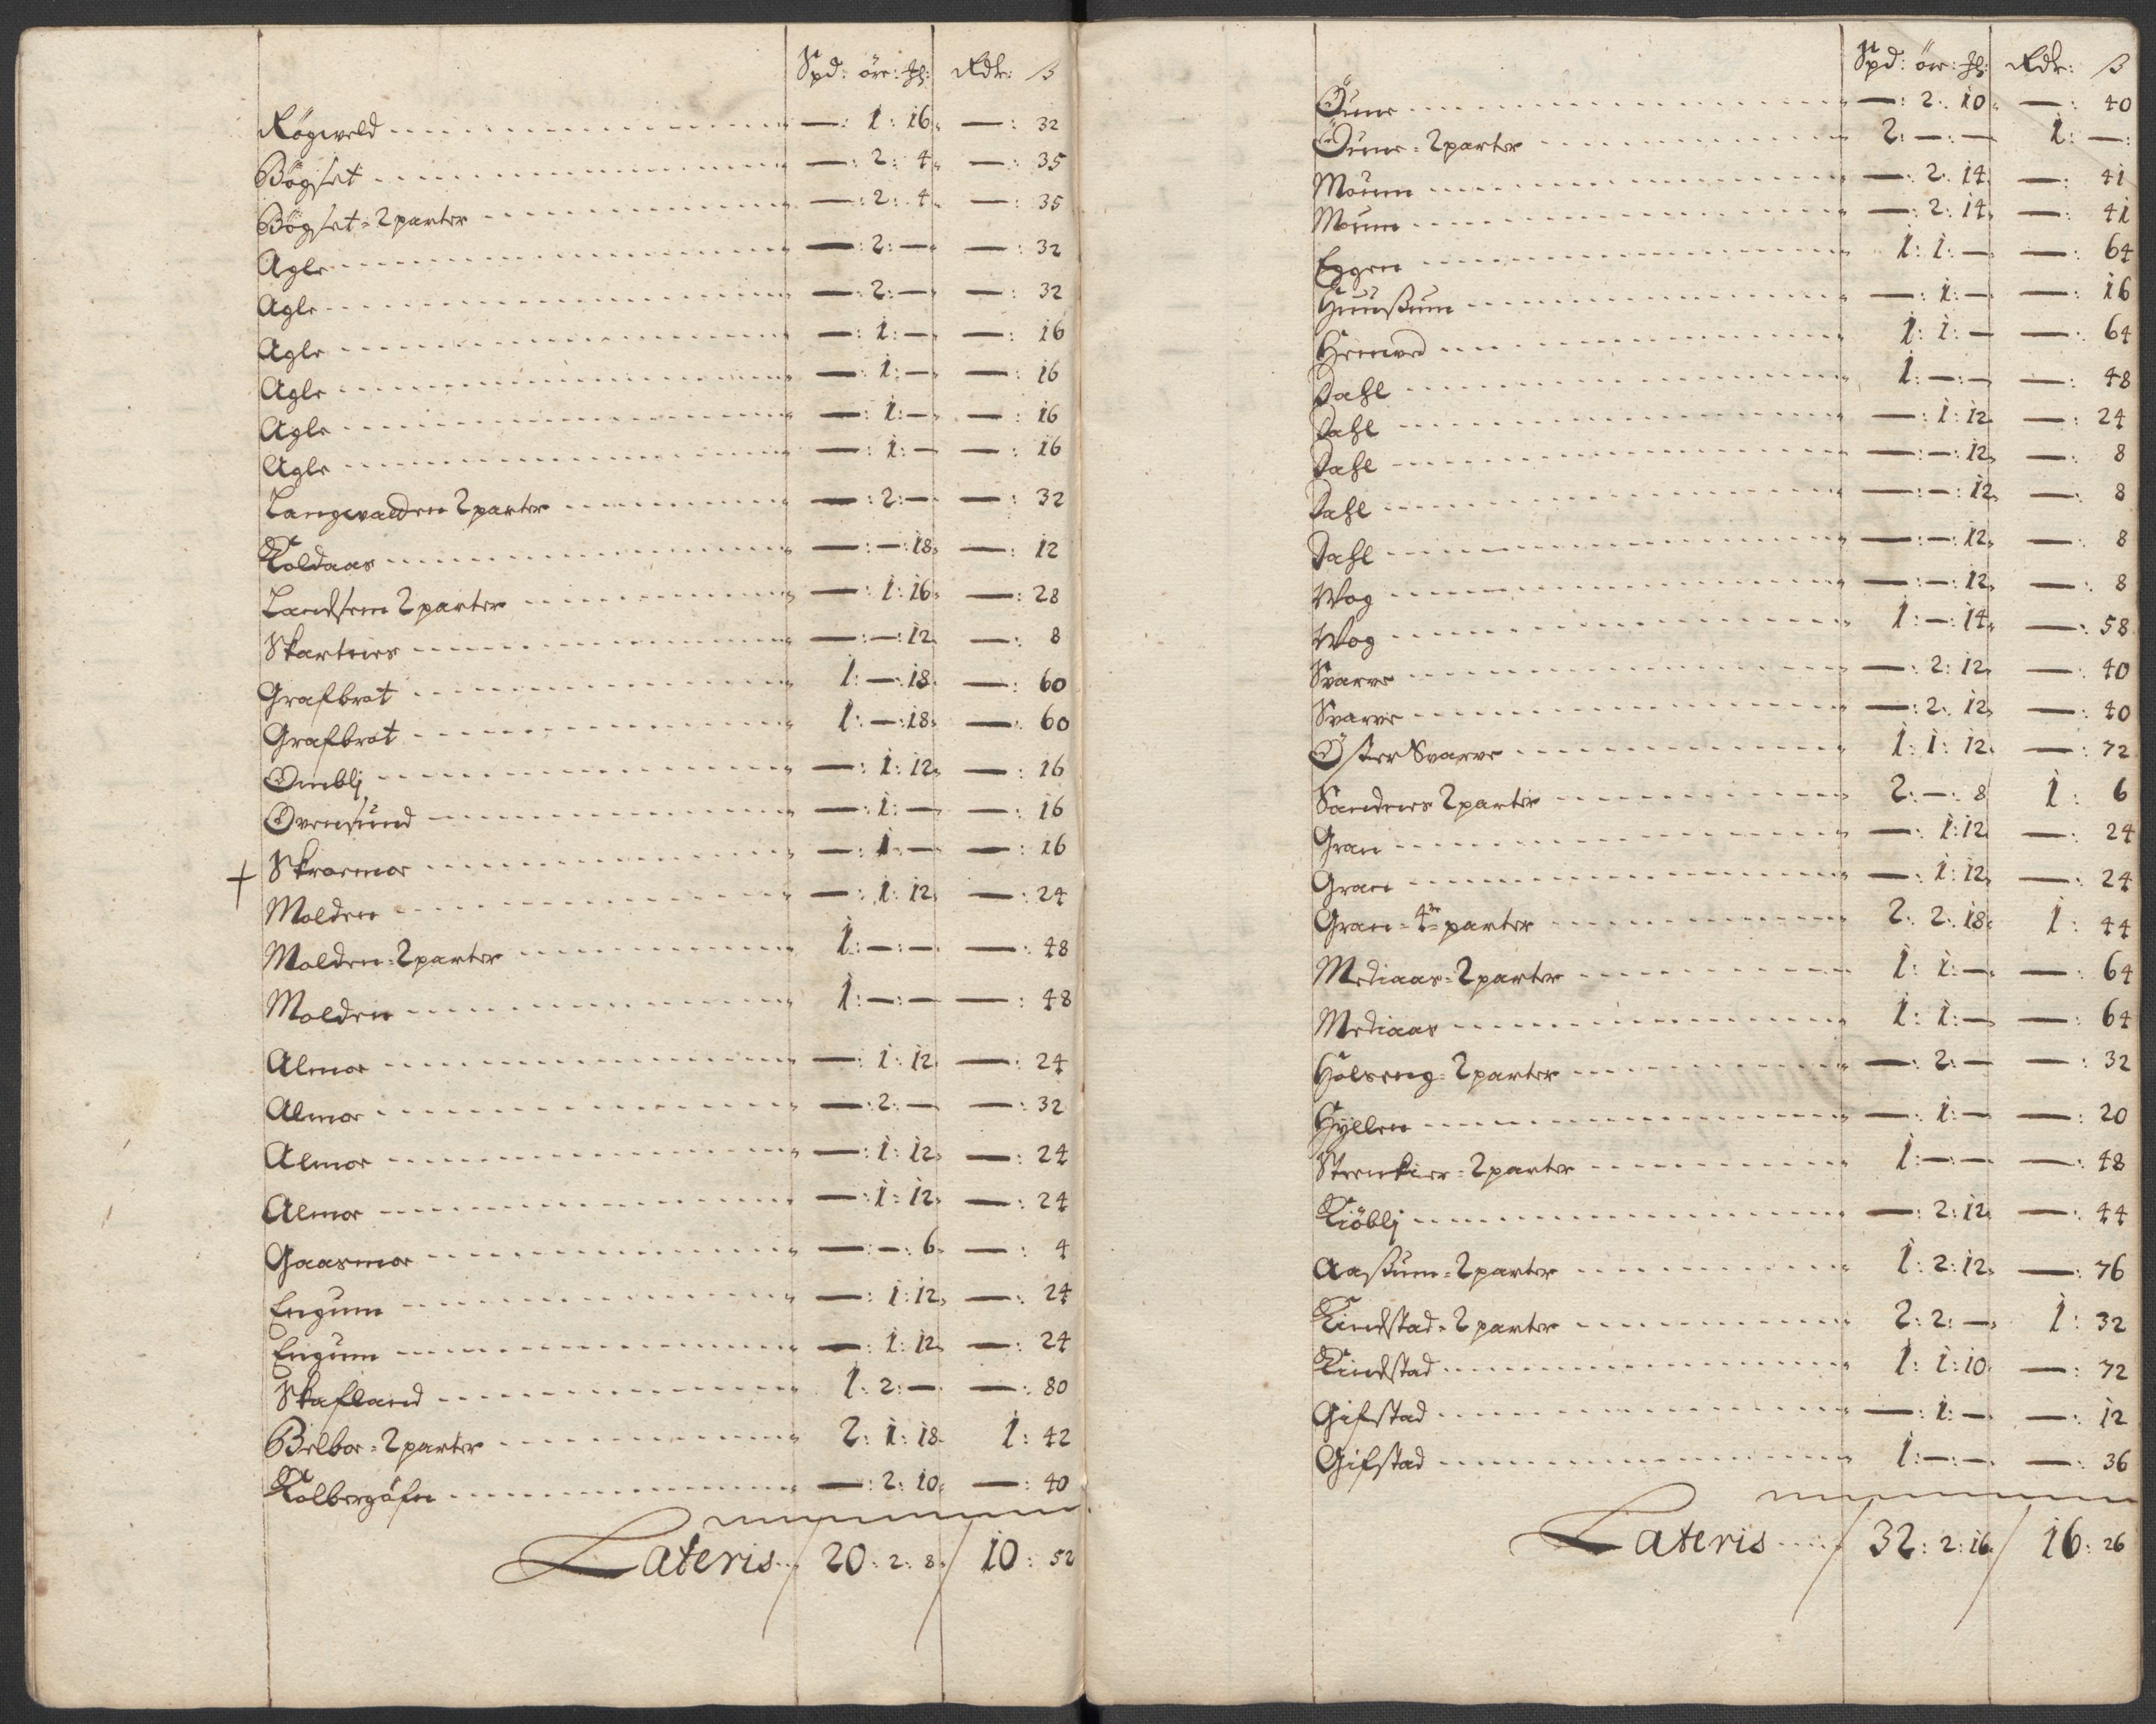 Spd: öre: ₰: Rdr: ß
Røgweld — : 1 : 16. — : 32
Bögset — : 2 : 4. — : 35
Bögset = 2 parter — : 2 : 4. — : 35
Agle — : 2 : — — : 32
Agle — : 2 : — — : 32
Agle — : 1 : — — : 16
Agle — : 1 : — — : 16
Agle — : 1 : — — : 16
Agle — : 1 : — — : 16
Langvadden 2 parter — : 2 : — — : 32
Koldaas — : — : 18. — : 12
Landsem 2 parter — : 1 : 16. — : 28
Skartnes — : — : 12. — : 8
Grafbrot 1 : — : 18. — : 60
Grafbrot 1 : — : 18. — : 60
Omblj — : 1 : 12. — : 16
Ovensund — : 1 : — — : 16
+ Skroemoe — : 1 : — — : 16
Molden — : 1 : 12. — : 24
Molden = 2 parter 1 : — : — — : 48
Molden 1 : — : — — : 48
Almoe — : 1 : 12. — : 24
Almoe — : 2 : — — : 32
Almoe — : 1 : 12. — : 24
Almoe — : 1 : 12. — : 24
Gaasmoe — : — : 6. — : 4
Engum — : 1 : 12. — : 24
Engum — : 1 : 12. — : 24
Skafland 1 : 2 : — — : 80
Belboe = 2 parter 2 : 1 : 18. 1 : 42
Kolbergöfn — : 2 : 10. — : 40
Lateris 20 : 2 : 8. 10 : 52
Spd: öre: ₰: Rdr: ß
Öune — : 2 : 10. — : 40
Öune = 2 parter 2 : — : — 1 : — :
Moum — : 2 : 14. — : 41
Moum — : 2 : 14. — : 41
Eggen 1 : 1 : — — : 64
Huußum — : 1 : — — : 16
Hemved 1 : 1 : — — : 64
Dahl 1 : — : — — : 48
Dahl — : 1 : 12. — : 24
Dahl — : — : 12. — : 8
Dahl — : — : 12. — : 8
Dahl — : — : 12. — : 8
Wog — : — : 12. — : 8
Wog 1 : — : 14. — : 58
Svarve — : 2 : 12. — : 40
Svarve — : 2 : 12. — : 40
Öster Svarve 1 : 1 : 12. — : 72
Sandnes 2 parter 2 : — : 8 1 : 6
Gran — : 1 : 12. — : 24
Gran — : 1 : 12. — : 24
Gran = 4re parter 2 : 2 : 18. 1 : 44
Mediaas = 2 parter 1 : 1 : — — : 64
Mediaas 1 : 1 : — — : 64
Holseng = 2 parter — : 2 : — — : 32
Hyllen — : 1 : — — : 20
Stenkier = 2 parter 1 : — : — — : 48
Kiöblj — : 2 : 12. — : 44
Aaßum = 2 parter 1 : 2 : 12. — : 76
Kindstad = 2 parter 2 : 2 : — 1 : 32
Kindstad 1 : 1 : 10. — : 72
Gifstad — : 1 : — — : 12
Gifstad 1 : — : — — : 36
Lateris 32 : 2 : 16. 16 : 26